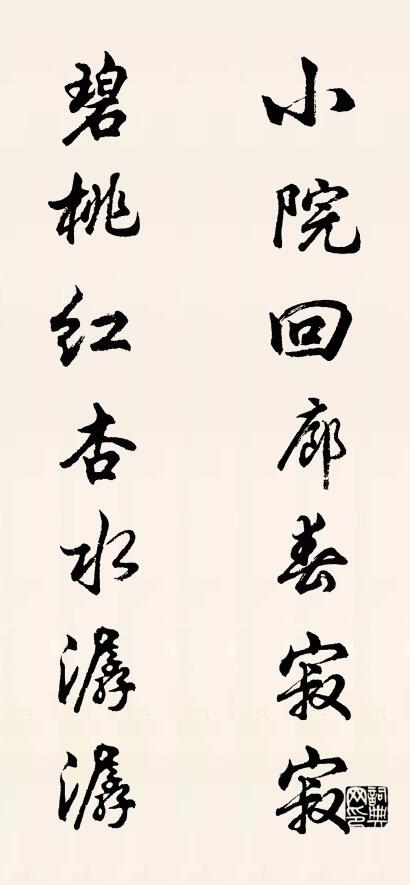 小院回廊春寂寂
碧桃红杏水潺潺
词典网印